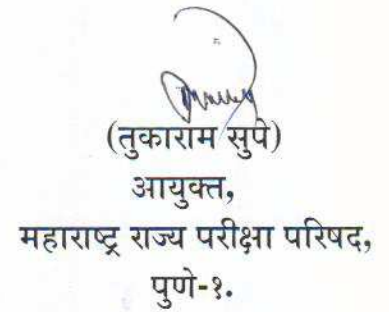 (तुकाराम सुपे)
आयुक्त,
महाराष्ट्र राज्य परीक्षा परिषद,
पुणे-१.